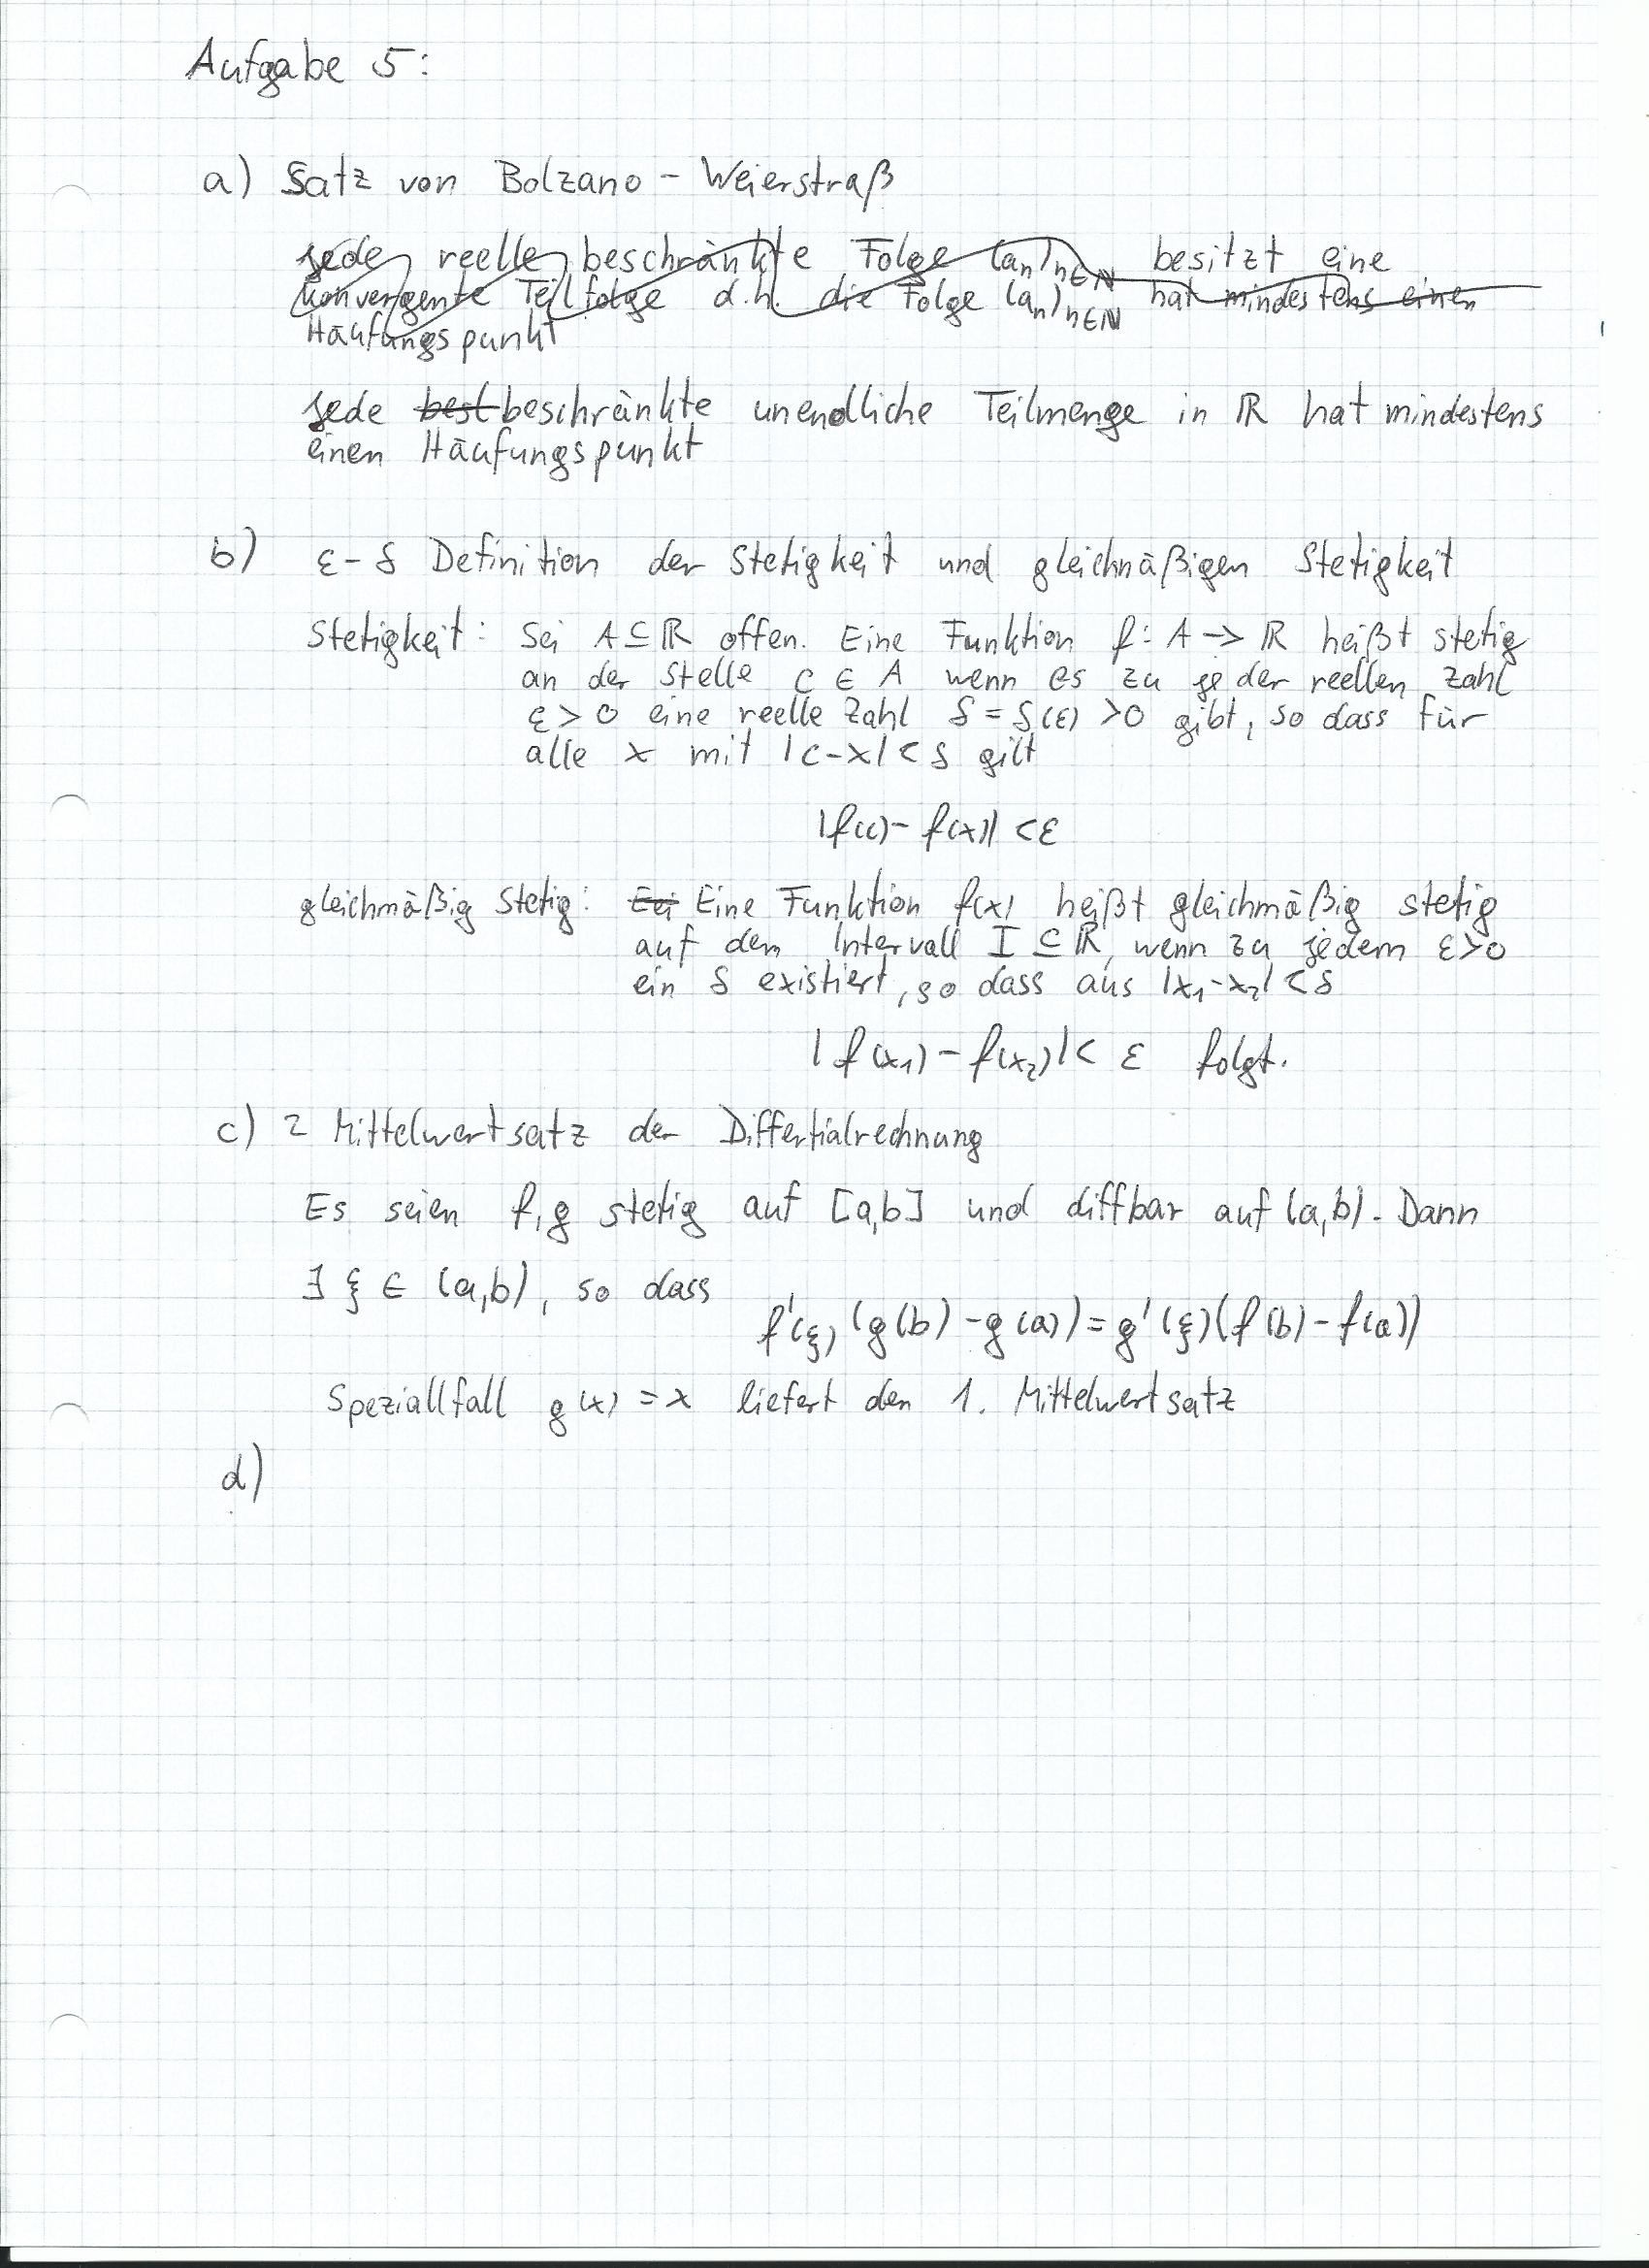 Aufgabe 5:
a) Satz von Bolzano - Weierstraß
Jede reelle beschränkte Folge (an)n∈ℕ besitzt eine
konvergente Teilfolge d.h. die Folge (an)n∈ℕ hat mindestens einen
Häufungspunkt
Jede besl beschränkte unendliche Teilmenge in ℝ hat mindestens
einen Häufungspunkt
b) ε-δ Definition der Stetigkeit und gleichmäßigen Stetigkeit
Stetigkeit: Sei A ⊆ ℝ offen. Eine Funktion f: A → ℝ heißt stetig
an der Stelle c ∈ A wenn es zu jeder reellen Zahl
ε > 0 eine reelle Zahl δ = δ(ε) > 0 gibt, so dass für
alle x mit |c-x| < δ gilt
|f(c) - f(x)| < ε
gleichmäßig stetig: Eei Eine Funktion f(x) heißt gleichmäßig stetig
auf dem Intervall I ⊆ ℝ, wenn zu jedem ε>0
ein δ existiert, so dass aus |x₁-x₂| < δ
|f(x₁) - f(x₂)| < ε folgt.
c) 2 Mittelwertsatz der Differtialrechnung
Es seien f,g stetig auf [a,b] und diffbar auf (a,b). Dann
∃ ξ ∈ (a,b), so dass
f'(ξ) (g(b) - g(a)) = g'(ξ)(f(b) - f(a))
Speziallfall g(x) = x liefert den 1. Mittelwertsatz
d)